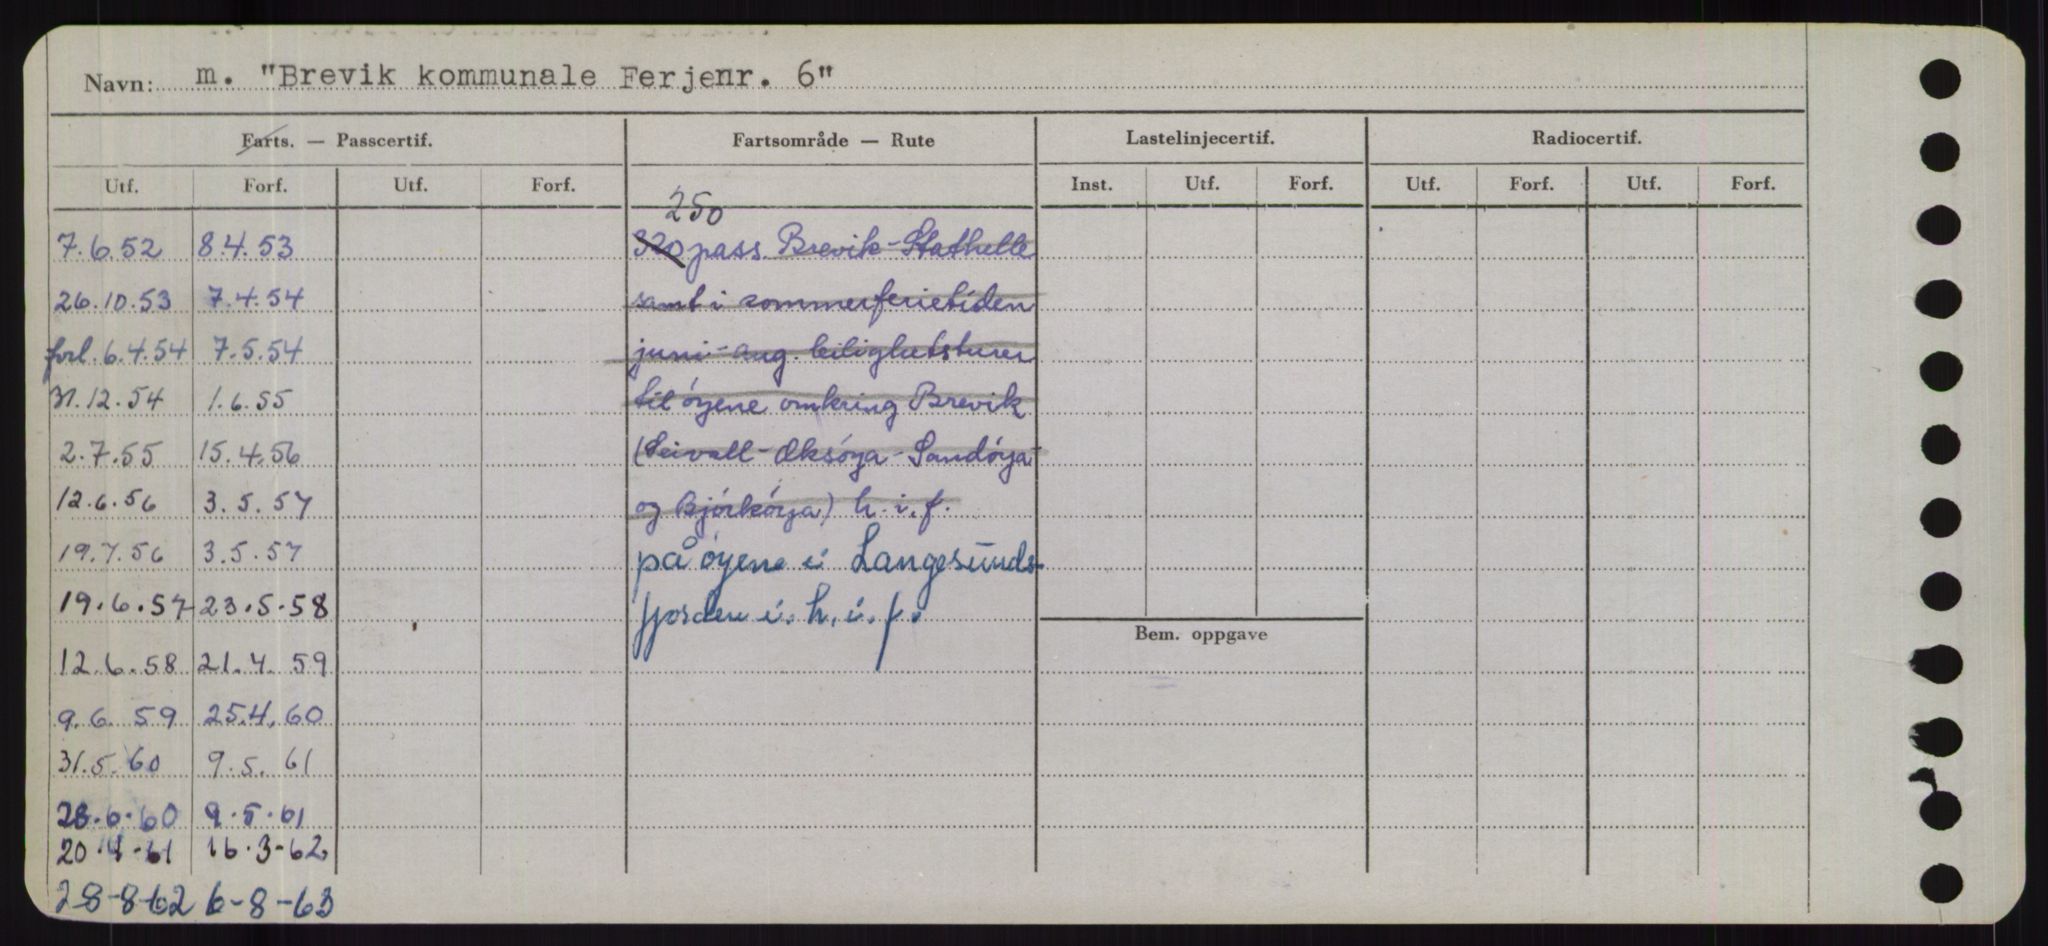 Navn: m. "Brevik kommunale Ferjenr. 6"
Farts. — Passcertif. Fartsområde — Rute Lastelinjecertif. Radiocertif.
Utf. Forf. Utf. Forf. Inst. Utf. Forf. Utf. Forf. Utf. Forf.
250
7.6.52 8.4.53 320 pass. Brevik-Stathelle
26.10.53 7.4.54 samt i sommerferietiden
forl. 6.4.54 7.5.54 juni-aug. leilighetsturer
31.12.54 1.6.55 til øyene omkring Brevik
2.7.55 15.4.56 (Seivall-Oksøya-Sandøya
12.6.56 3.5.57 og Bjørkøya) h.i.f.
19.7.56 3.5.57 på øyene i Langesunds-
19.6.57 23.5.58 fjorden i.h.i.f.
Bem. oppgave
12.6.58 21.4.59
9.6.59 25.4.60
31.5.60 9.5.61
28.6.60 9.5.61
20.4-61 16.3-62
28-8-62 6-8-63